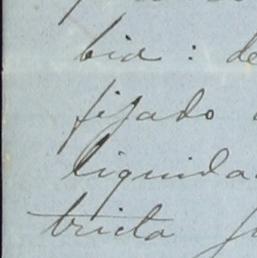 bia: de
fijado
liquida
tricta